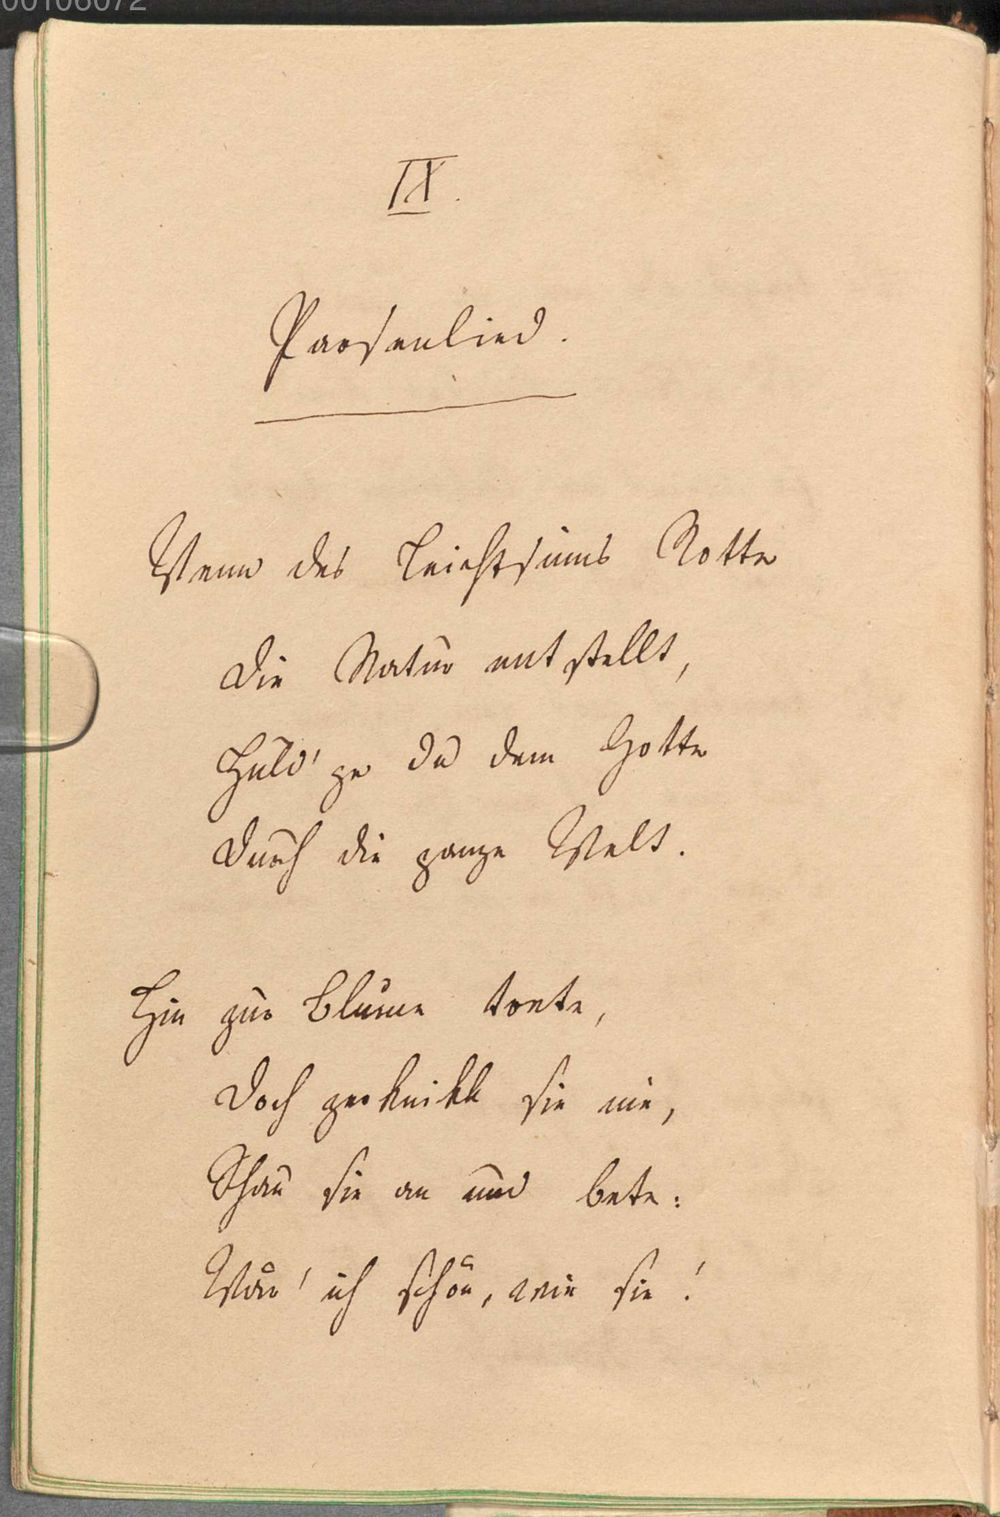 00106072
IX.
Parsenlied.
Wenn des Leichtsinns Rotte
Die Natur entstellt,
Huld'ge du dem Gotte
Durch die ganze Welt.
Hin zur Blume trete,
Doch zerknikk sie nie,
Schau sie an und bete:
Wär' ich schön, wie sie!